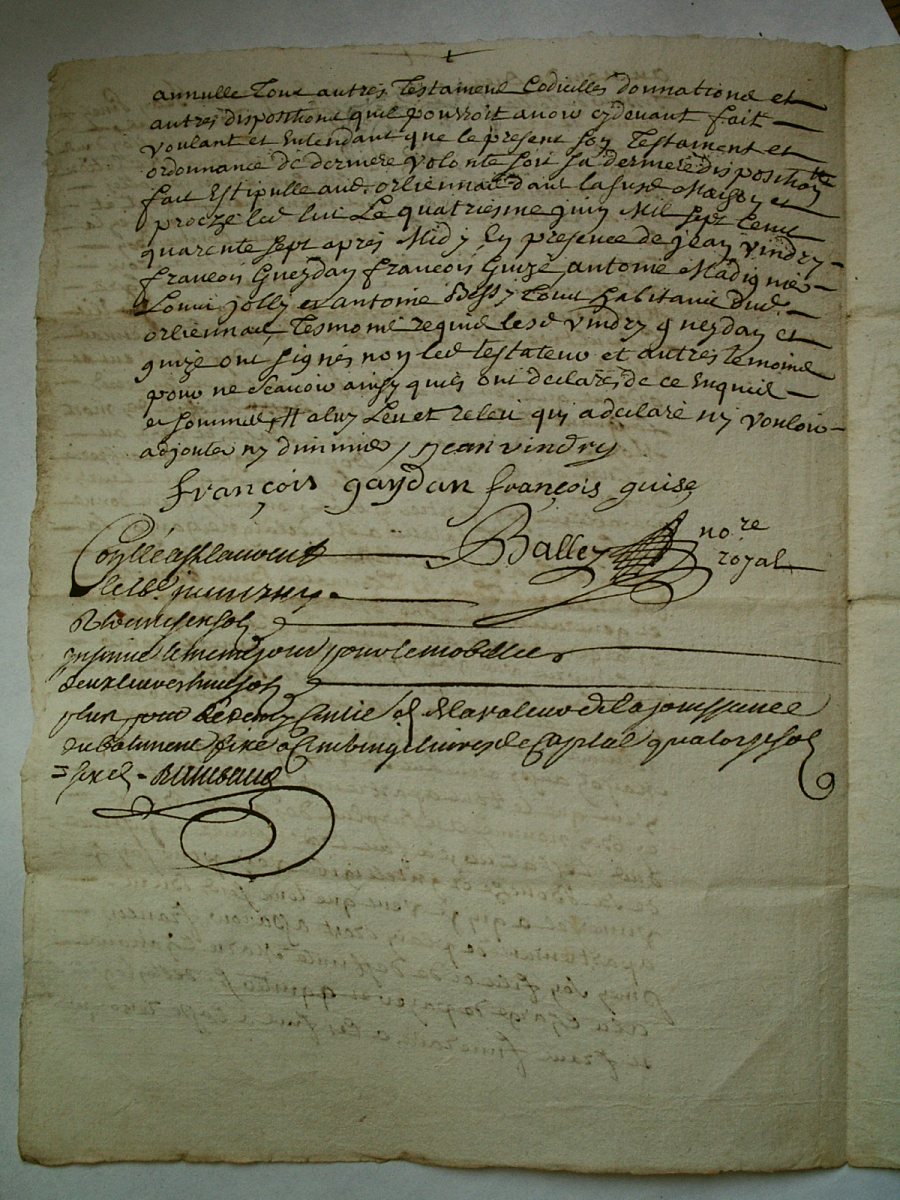 annulle tous autres testament codicilles donnations et
autres dispositions quil pouvroit avoir cydevant fait
voulant et entendant que le present son testament et
ordonnance de derniere volonte soit sa derniere disposition
fait et stipulle aud. orliennas dans la susd. Maison et
le quatriesme juin Mil sept cent
quarente sept apres Midy en presence de jean vindry
francois Gueydan francois Guize antoine Madignié
Louis jolly et antoine Bessy tous habitants dud.
orliennas, tesmoins requis lesd. vindry gueydan et
guize ont signés non led. testateur et autres temoins
pour ne scavoir ainsy quils ont declarés de ce enquis
et sommés, a luy leu et releu qui a declaré ny vouloir
adjouter ny diminuer jean vindry
françois gaydan françois guise
Ballet no.re
royal
insinué le meme jour pour le mobilier
deux livres huit sols
plus pour la valeur de la jouissance
du batiment fixé a livres de capital quatorze sols
six d.